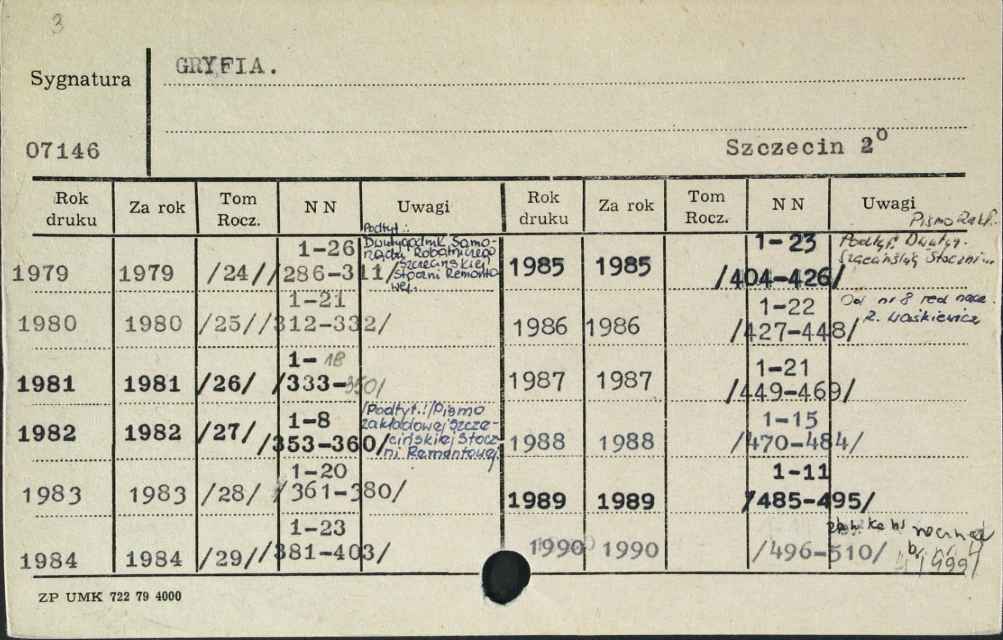 3
Sygnatura
GRYFIA.
07146
Szczecin 2°
Rok druku Za rok Tom Rocz. NN Uwagi Rok druku Za rok Tom Rocz. NN Uwagi
1979 1979 /24/ 1-26 /286-311/ Podtyt.: Dwutygodnik Samorządu Robotniczego Szczecińskiej Stoczni Remontowej.
1980 1980 /25/ 1-21 /312-332/
1981 1981 /26/ 1-18 /333-350/
1982 1982 /27/ 1-8 /353-360/ /Podtyt.:/Pismo zakładowej Szczecińskiej Stoczni Remontowej
1983 1983 /28/ 1-20 /361-380/
1984 1984 /29/ 1-23 /381-403/
1985 1985 1-23 /404-426/ Pismo Podtyt. Stoczni
1986 1986 1-22 /427-448/ Od nr 8 red. nacz. Z. Waśkiewicz
1987 1987 1-21 /449-469/
1988 1988 1-15 /470-484/
1989 1989 1-11 /485-495/
1990 1990 /496-510/
ZP UMK 722 79 4000